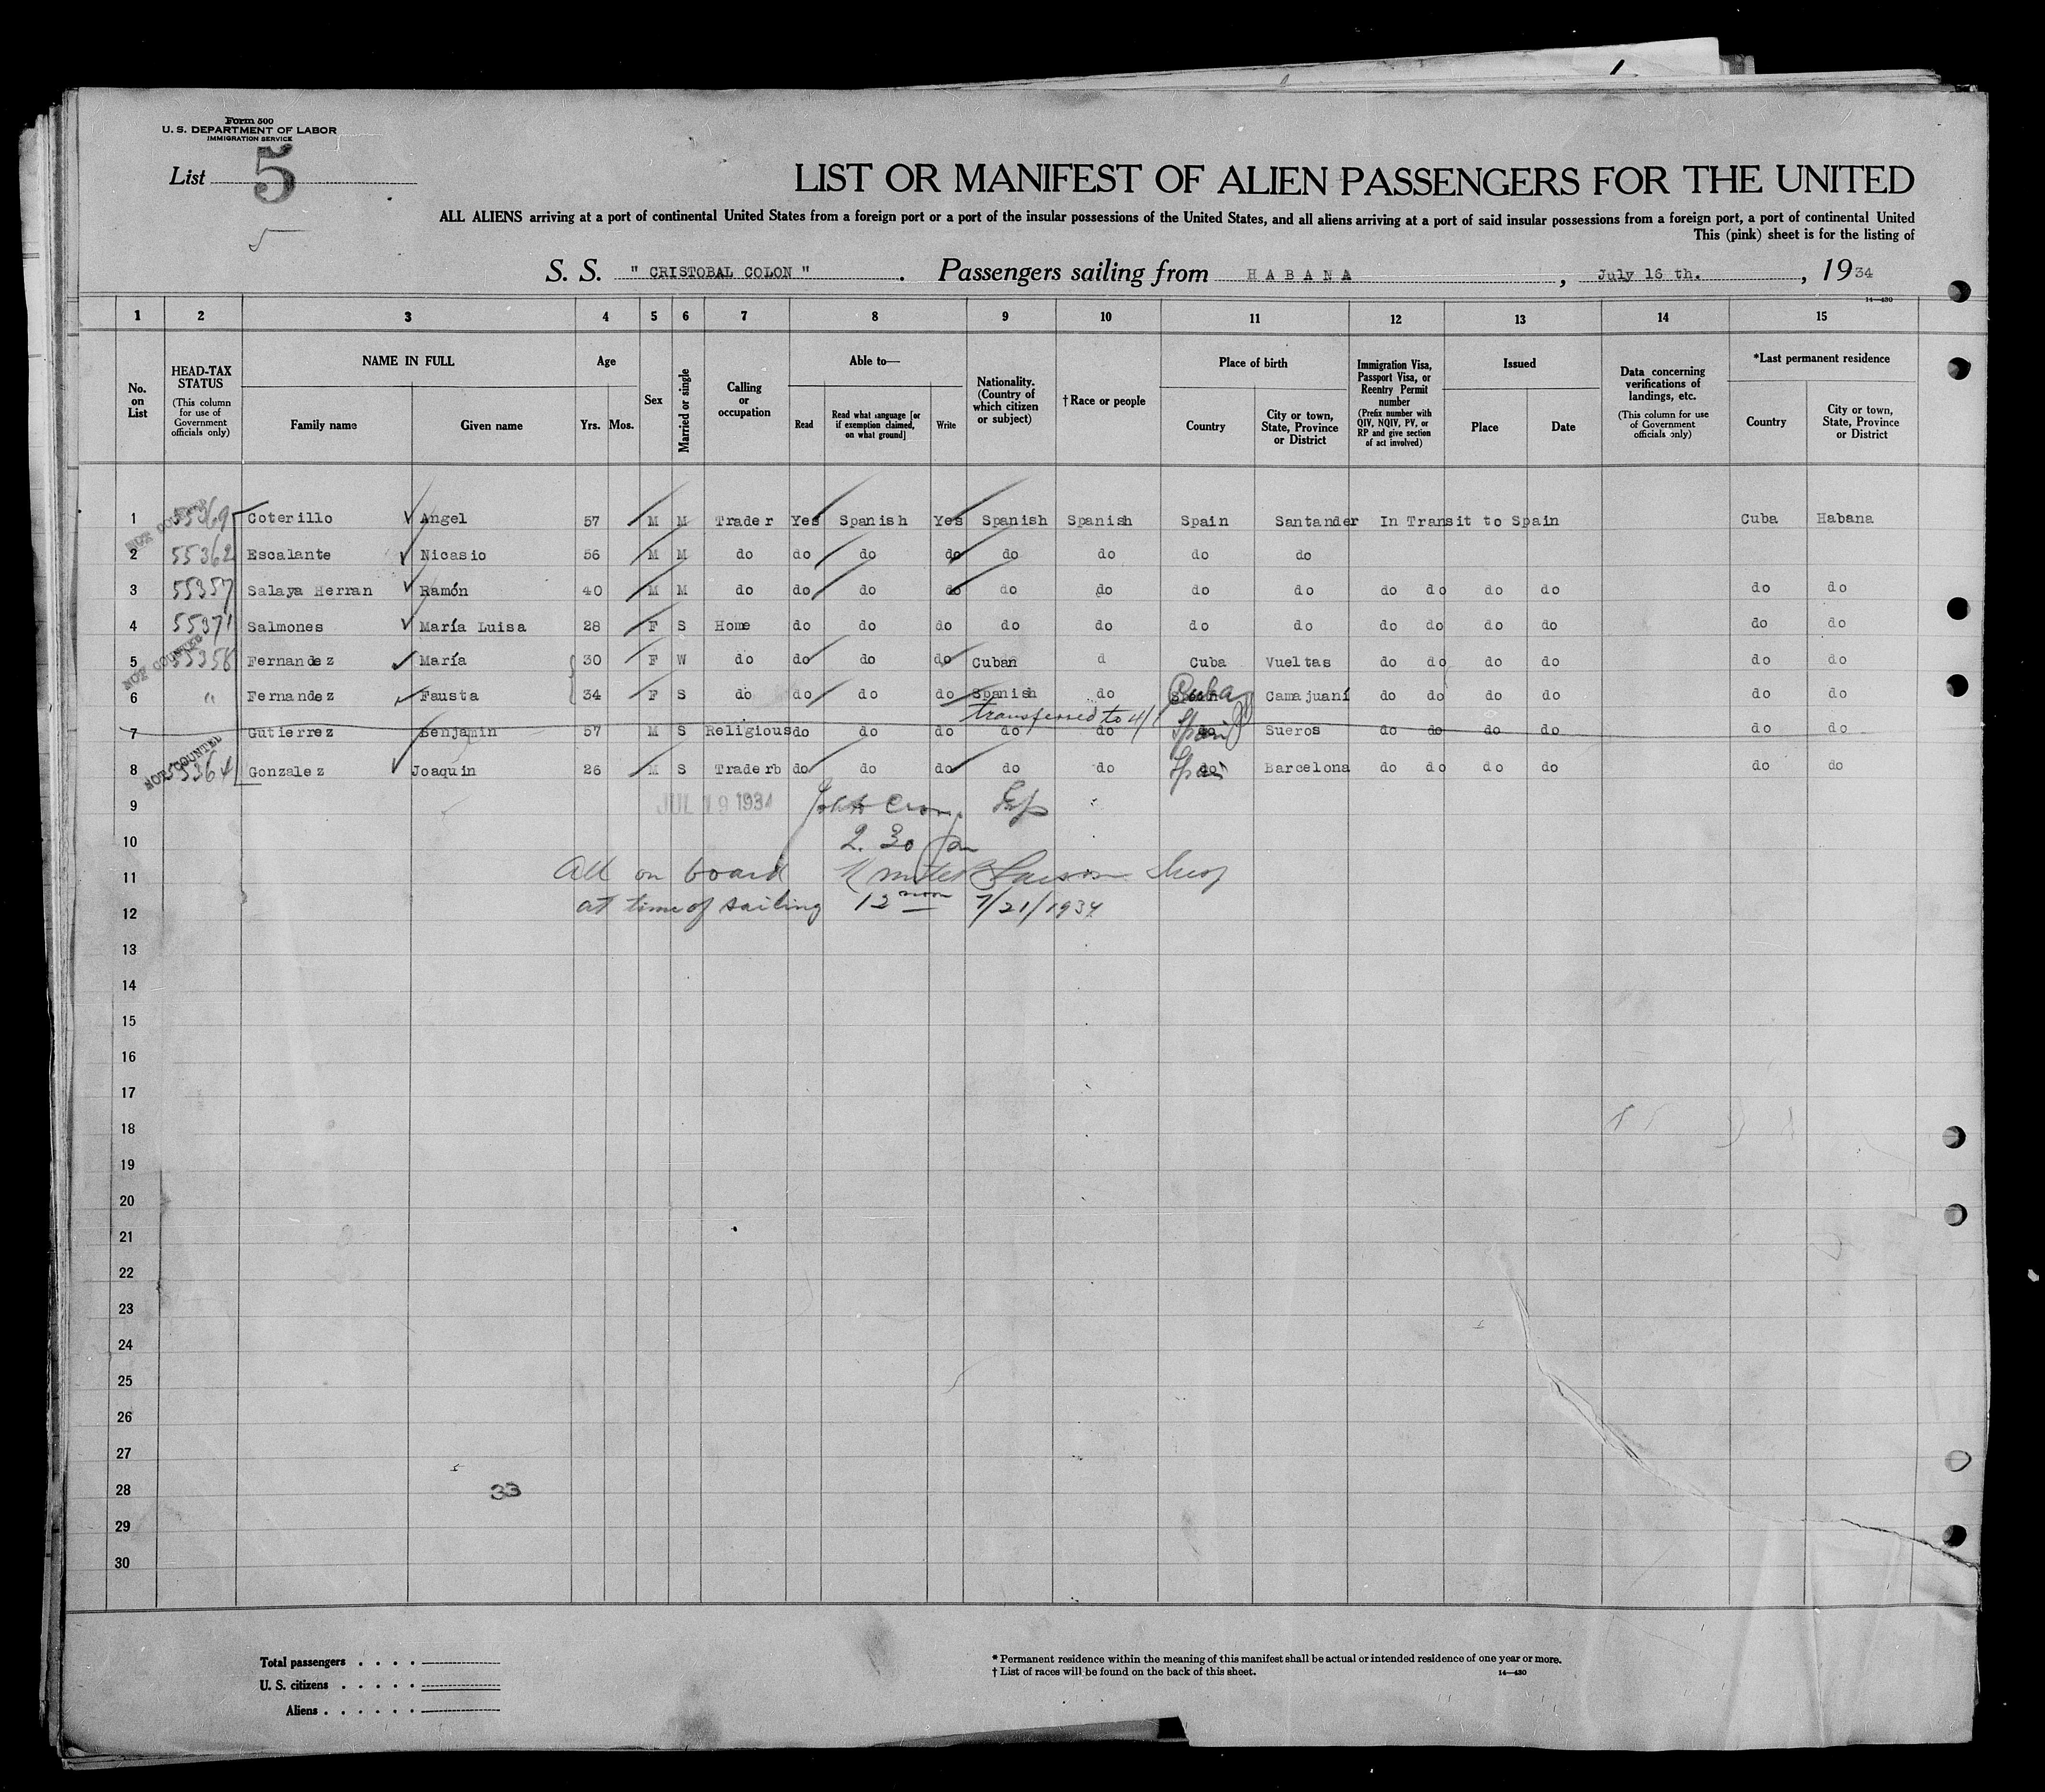 Form 500
U. S. DEPARTMENT OF LABOR
IMMIGRATION SERVICE
List 5
5
LIST OR MANIFEST OF ALIEN PASSENGERS FOR THE UNITED
ALL ALIENS arriving at a port of continental United States from a foreign port or a port of the insular possessions of the United States, and all aliens arriving at a port of said insular possessions from a foreign port, a port of continental United
This (pink) sheet is for the listing of
S. S. " CRISTOBAL COLON " . Passengers sailing from HABANA , July 16 th. , 1934
14—430
1 2 3 4 5 6 7 8 9 10 11 12 13 14 15
No. on List
HEAD-TAX STATUS (This column for use of Government officials only)
NAME IN FULL Family name Given name
Age Yrs. Mos.
Sex
Married or single
Calling or occupation
Able to— Read Read what language [or if exemption claimed, on what ground] Write
Nationality. (Country of which citizen or subject)
†Race or people
Place of birth Country City or town, State, Province or District
Immigration Visa, Passport Visa, or Reentry Permit number (Prefix number with QIV, NQIV, PV, or RP and give section of act involved)
Issued Place Date
Data concerning verifications of landings, etc. (This column for use of Government officials only)
*Last permanent residence Country City or town, State, Province or District
1 NOT COUNTED 55369 Coterillo Angel 57 M M Trader Yes Spanish Yes Spanish Spanish Spain Santander In Transit to Spain Cuba Habana
2 55362 Escalante Nicasio 56 M M do do do do do do do do
3 55357 Salaya Herran Ramón 40 M M do do do do do do do do do do do do do do
4 55371 Salmones María Luisa 28 F S Home do do do do do do do do do do do do do
5 NOT COUNTED 55358 Fernandez María 30 F W do do do do Cuban d Cuba Vueltas do do do do do do
6 " Fernandez Fausta 34 F S do do do do Spanish do Cuba Camajuaní do do do do do do
transferred to 4/1
7 Gutierrez Benjamin 57 M S Religious do do do do do Spain Sueros do do do do do do
8 NOT COUNTED 55364 Gonzalez Joaquin 26 M S Traderb do do do do do Spain Barcelona do do do do do do
9 JUL 19 1934
10 2.30 pm
11 All on board
12 at time of sailing 12 noon 7/21/1934
13
14
15
16
17
18
19
20
21
22
23
24
25
26
27
28 33
29
30
Total passengers . . . .
U. S. citizens . . . . .
Aliens . . . . . .
* Permanent residence within the meaning of this manifest shall be actual or intended residence of one year or more.
† List of races will be found on the back of this sheet. 14—430